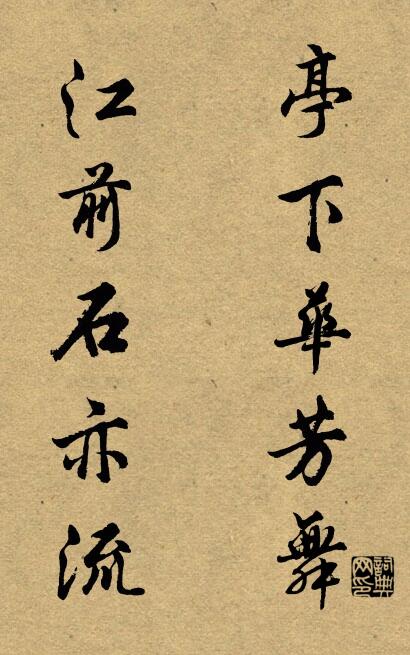 亭下華芳舞
江前石亦流
詞典网印